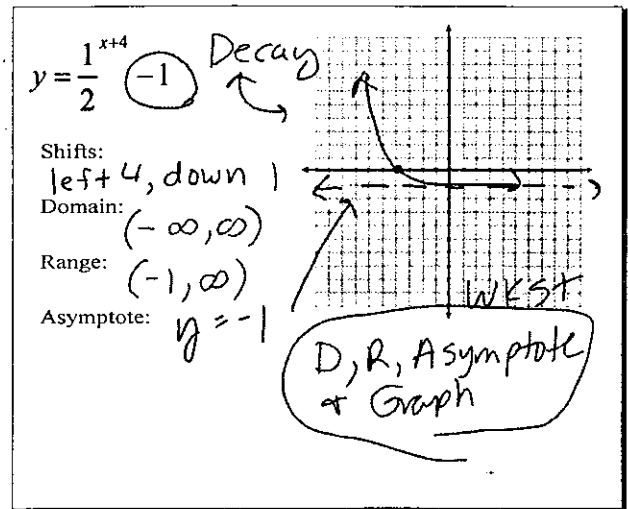 y = 1/2^(x+4) -1
Decay
Shifts:
left 4, down 1
Domain:
(-∞,∞)
Range:
(-1,∞)
Asymptote: y = -1
WKST
D, R, Asymptote
+ Graph